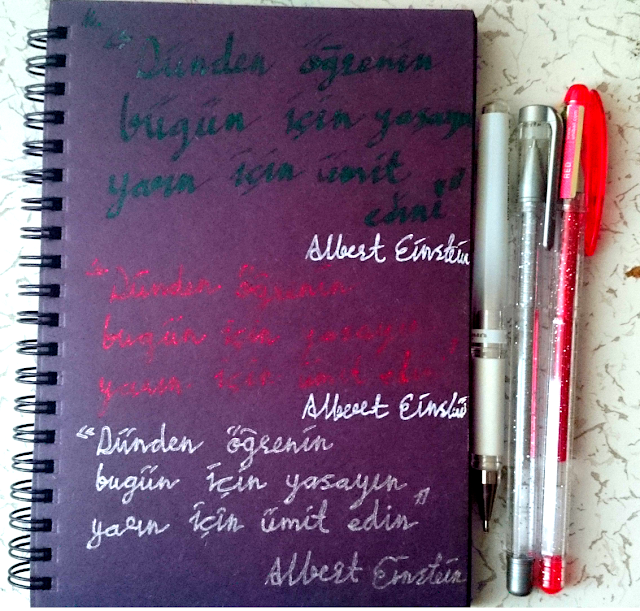 “Dünden öğrenin
bugün için yaşayın
yarın için ümit
edin”
Albert Einstein
“Dünden öğrenin
bugün için yaşayın
yarın için ümit edin”
Albert Einstein
“Dünden öğrenin
bugün için yasayın
yarın için ümit edin”
Albert Einstein
RED